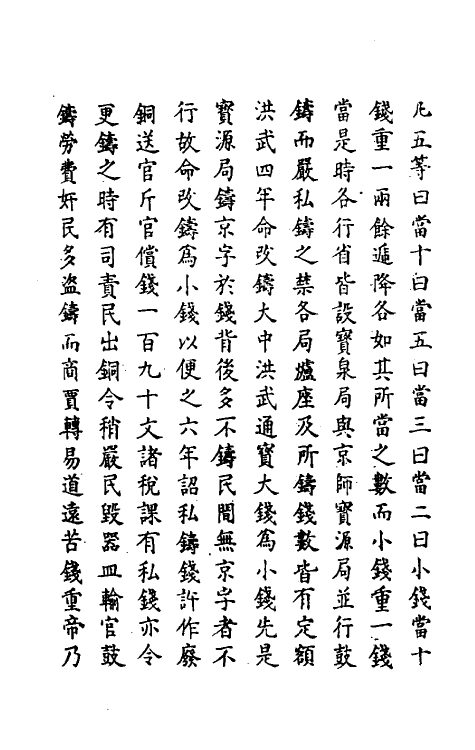 凡五等曰當十曰當五曰當三曰當二曰小錢當十
錢重一兩餘遞降各如其所當之數而小錢重一錢
當是時各行省皆設寶泉局與京師寶源局並行鼓
鑄而嚴私鑄之禁各局爐座及所鑄錢數皆有定額
洪武四年命改鑄大中洪武通寶大錢為小錢先是
寳源局鑄京字於錢背後多不鑄民間無京字者不
行故命改鑄爲小錢以便之六年詔私鑄錢許作廢
銅送官斤官償錢一百九十文諸稅課有私錢亦令
更鑄之時有司責民出銅令稍嚴民毀器皿輸官鼓
鑄勞費奸民多盜鑄而商賈轉易道遠苦錢重帝乃